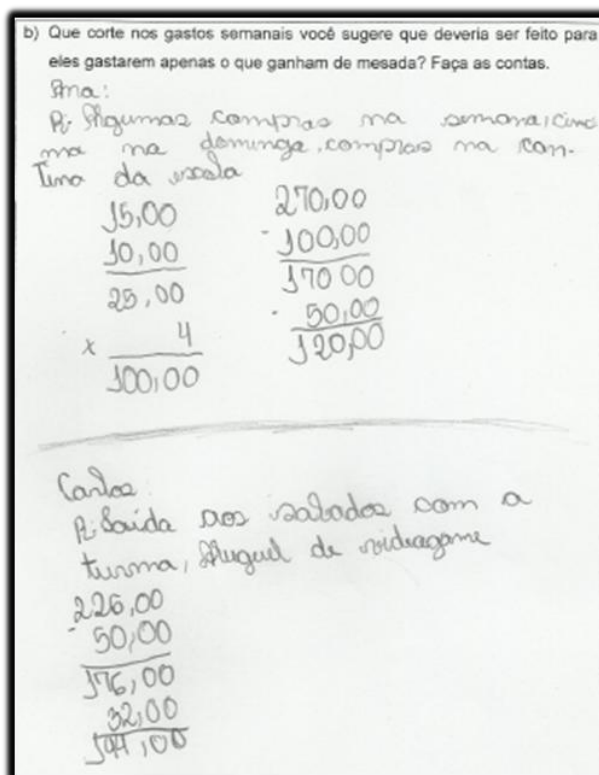 b) Que corte nos gastos semanais você sugere que deveria ser feito para
eles gastarem apenas o que ganham de mesada? Faça as contas.
Ana:
R: Algumas compras na semana, cine
ma na domingo, compras na can-
tina da escola
15,00
10,00
25,00
x 4
100,00
270,00
- 100,00
170 00
- 50,00
120,00
Carlos
R: Saída aos sabados com a
turma, Aluguel de videogame
226,00
- 50,00
176,00
32,00
144,00